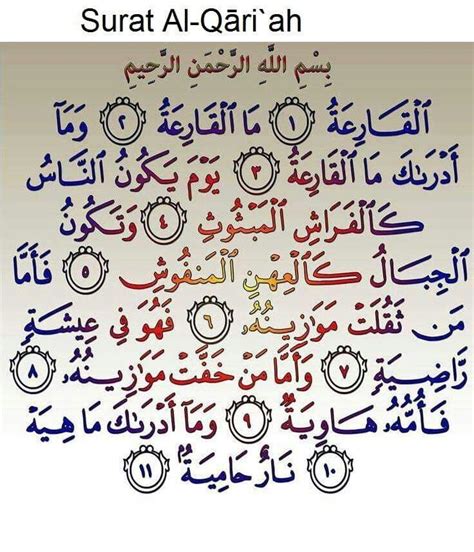 Surat Al-Qāri`ah
بِسْمِ اللَّهِ الرَّحْمَنِ الرَّحِيمِ
ٱلْقَارِعَةُ ١ مَا ٱلْقَارِعَةُ ٢ وَمَآ
أَدْرَىٰكَ مَا ٱلْقَارِعَةُ ٣ يَوْمَ يَكُونُ ٱلنَّاسُ
كَٱلْفَرَاشِ ٱلْمَبْثُوثِ ٤ وَتَكُونُ
ٱلْجِبَالُ كَٱلْعِهْنِ ٱلْمَنفُوشِ ٥ فَأَمَّا
مَن ثَقُلَتْ مَوَٰزِينُهُۥ ٦ فَهُوَ فِي عِيشَةٍ
رَّاضِيَةٍ ٧ وَأَمَّا مَنْ خَفَّتْ مَوَٰزِينُهُۥ ٨
فَأُمُّهُۥ هَاوِيَةٌ ٩ وَمَآ أَدْرَىٰكَ مَا هِيَهْ
١٠ نَارٌ حَامِيَةٌۢ ١١